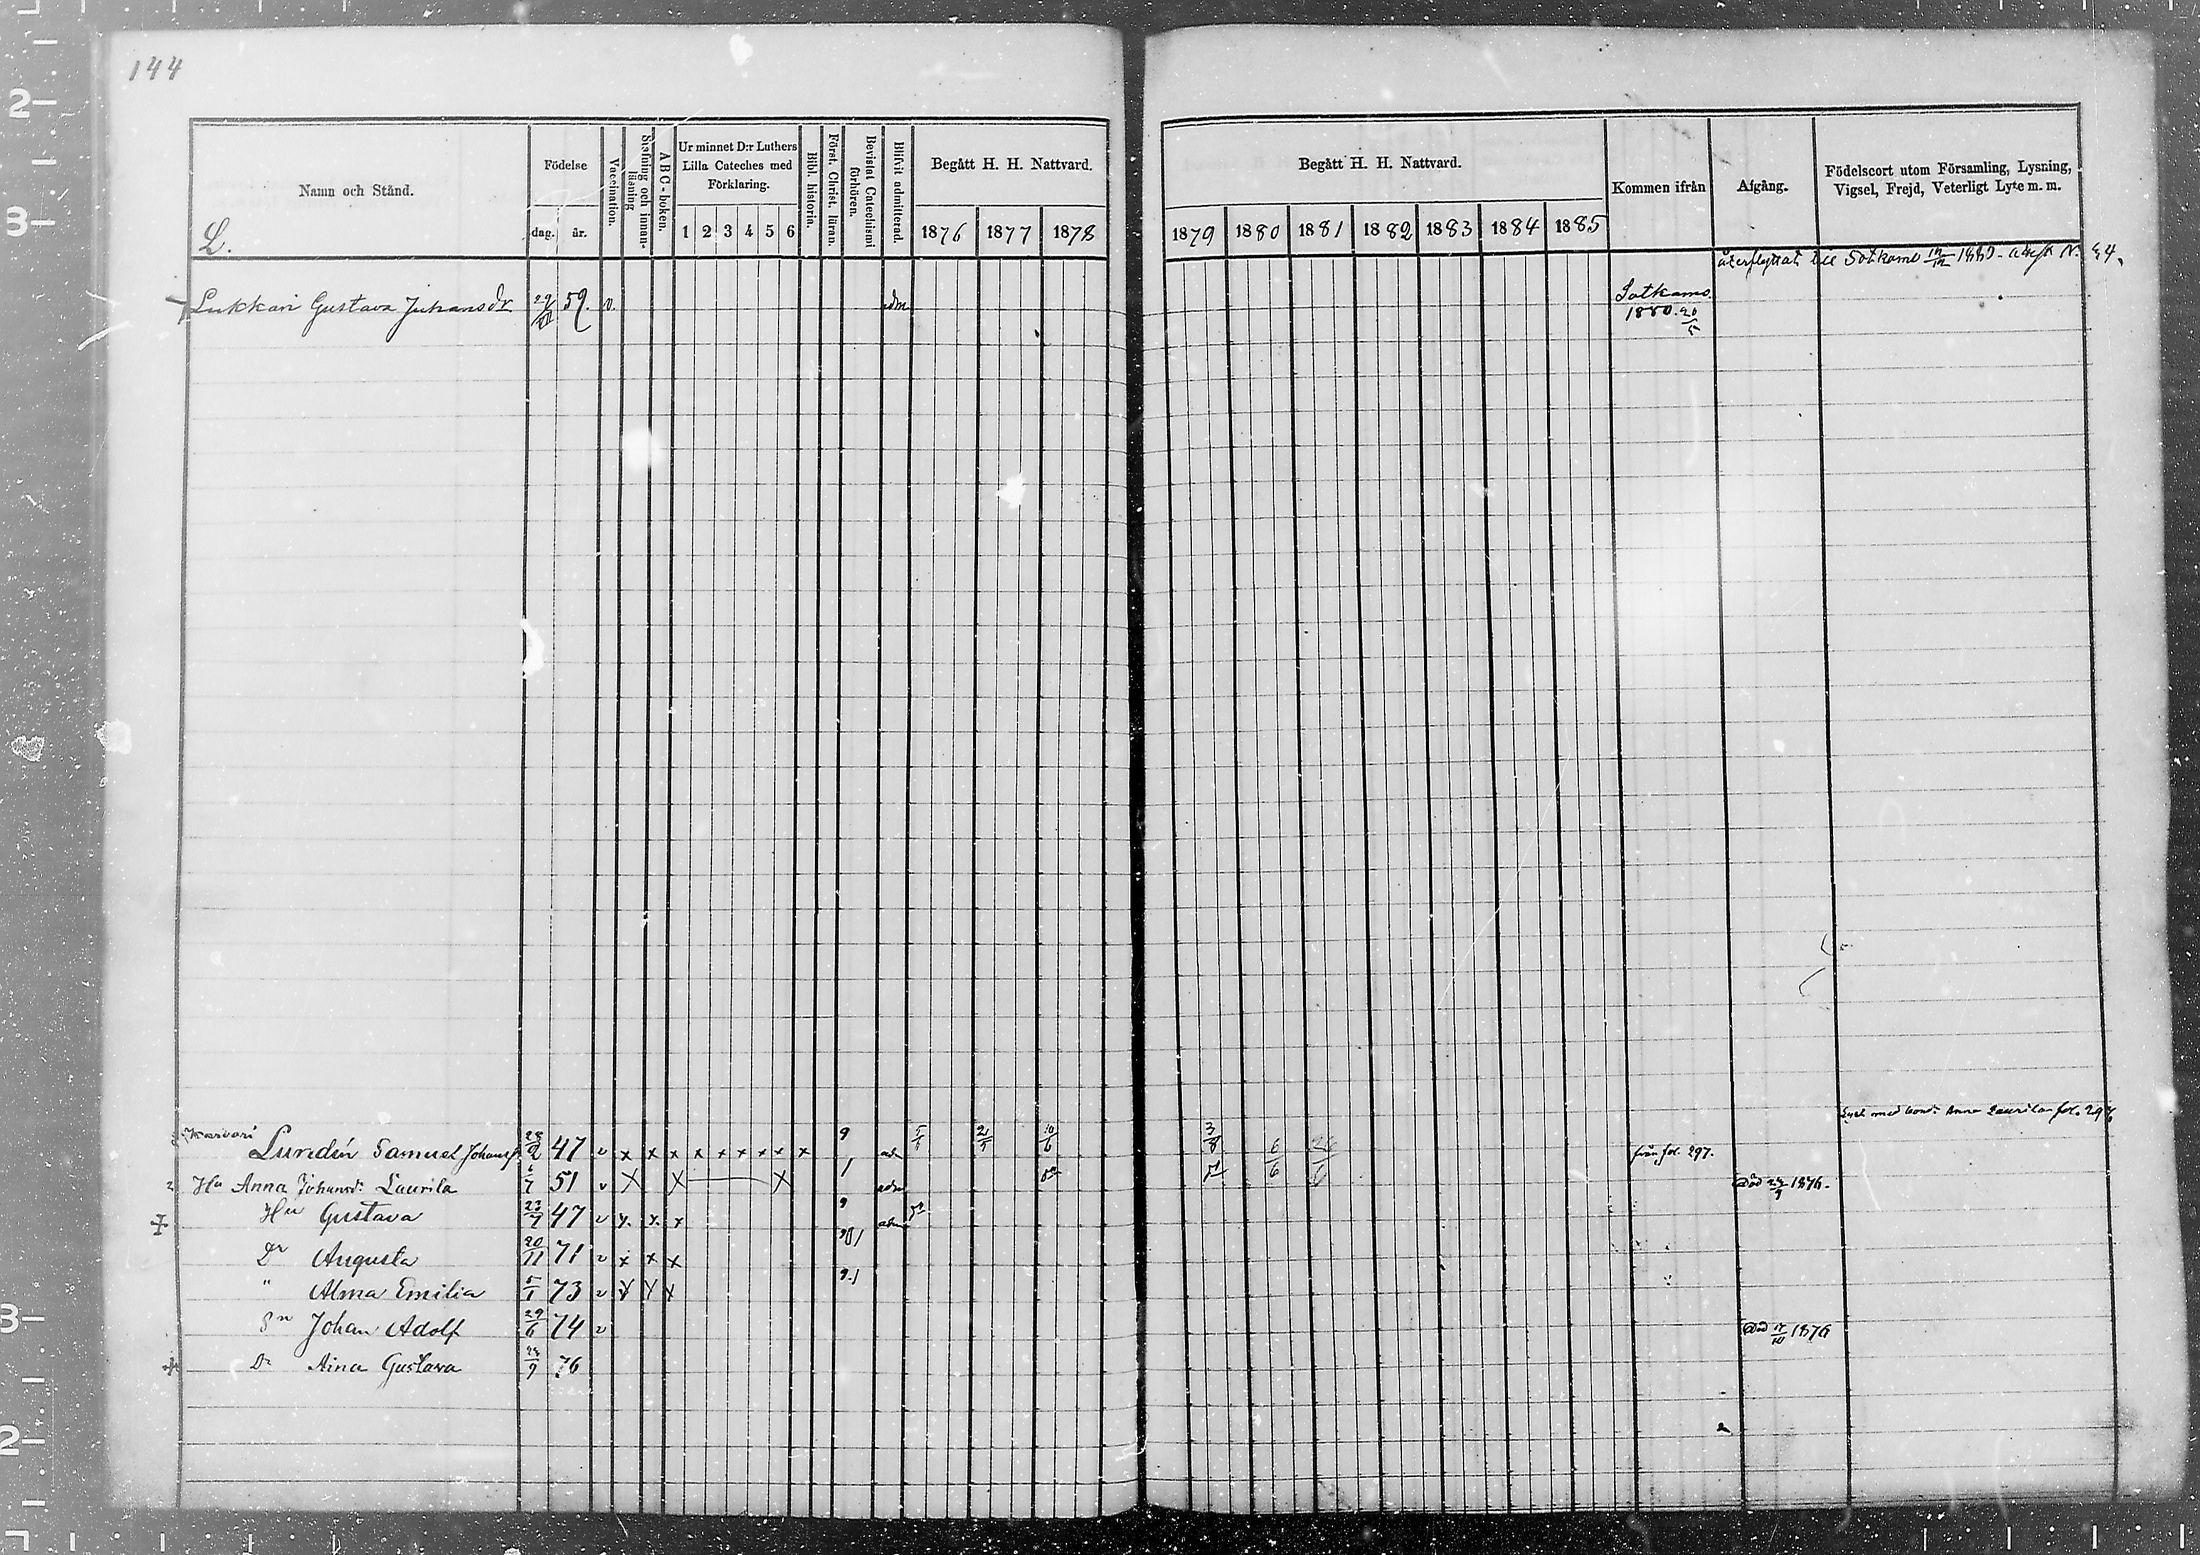 144
Namn och Stånd.
L.
Födelse
dag. år.
Vaccination.
Stafning och innanläsning
ABC-boken.
Ur minnet D:r Luthers Lilla Cateches med Förklaring.
1 2 3 4 5 6
Bibl. historia.
Först. Christ. läran.
Bevistat Catechismi förhören.
Blifvit admitterad.
Begått H. H. Nattvard.
1876 1877 1878
Begått H. H. Nattvard.
1879 1880 1881 1882 1883 1884 1885
Kommen ifrån
Afgång.
Födelseort utom Församling, Lysning, Vigsel, Frejd, Veterligt Lyte m. m.
återflyttat till Sotkamo 1880
Lukkari Gustava Juhansdr 59. v. adm Sotkamo. 1880. 20/5
Lyst med Anna Laurila fol. 297
Karvari
Lundén Samuel Johans 28/2 47 v x x x x x x x x x 9 5/5 2/9 10/6 3/8 6/6 från fol. 297.
Hu Anna Johansd: Laurila 6/7 51 v x x x 1 adm
Hu Gustava 23/7 47 v x x x 9 adm Död 24/9 1876.
Dr Augusta 20/11 71 v x x x
" Alma Emilia 5/1 73 v x x x 9.1
Sn Johan Adolf 29/6 74 v
Dr Aina Gustava 24/9 76 Död 1876